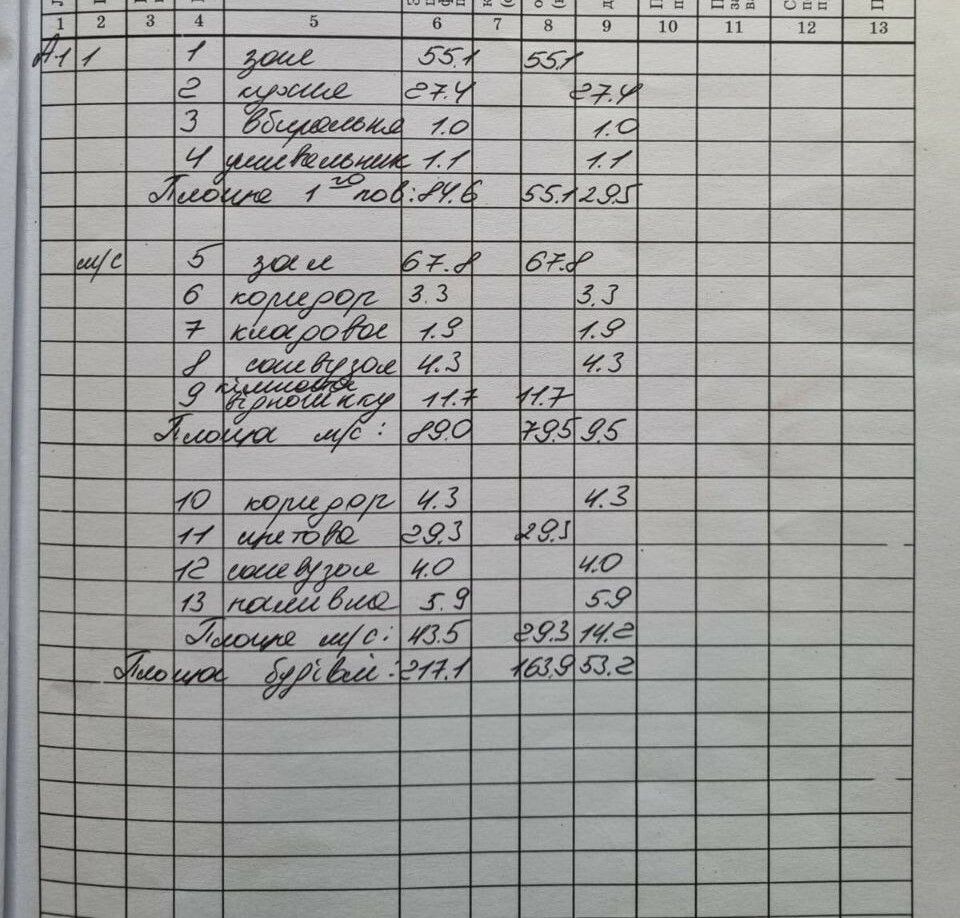 1 2 3 4 5 6 7 8 9 10 11 12 13
А-1 1 1 зал 55.1 55.1
2 кухня 27.4 27.4
3 вбиральня 1.0 1.0
4 умивальник 1.1 1.1
Площа 1го пов: 84.6 55.1 29.5
м/с 5 зал 67.8 67.8
6 коридор 3.3 3.3
7 кладова 1.9 1.9
8 санвузол 4.3 4.3
9 кімната відпочинку 11.7 11.7
Площа м/с: 89.0 79.5 9.5
10 коридор 4.3 4.3
11 щитова 29.3 29.3
12 санвузол 4.0 4.0
13 паливна 5.9 5.9
Площа м/с: 43.5 29.3 14.2
Площа будівлі: 217.1 163.9 53.2